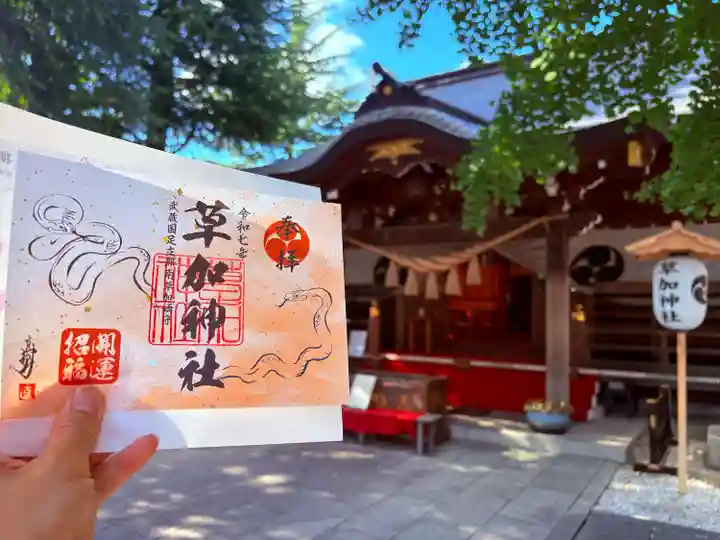 奉拝
令和七年
草加神社
武蔵国足立郡
開運
招福
草加神社